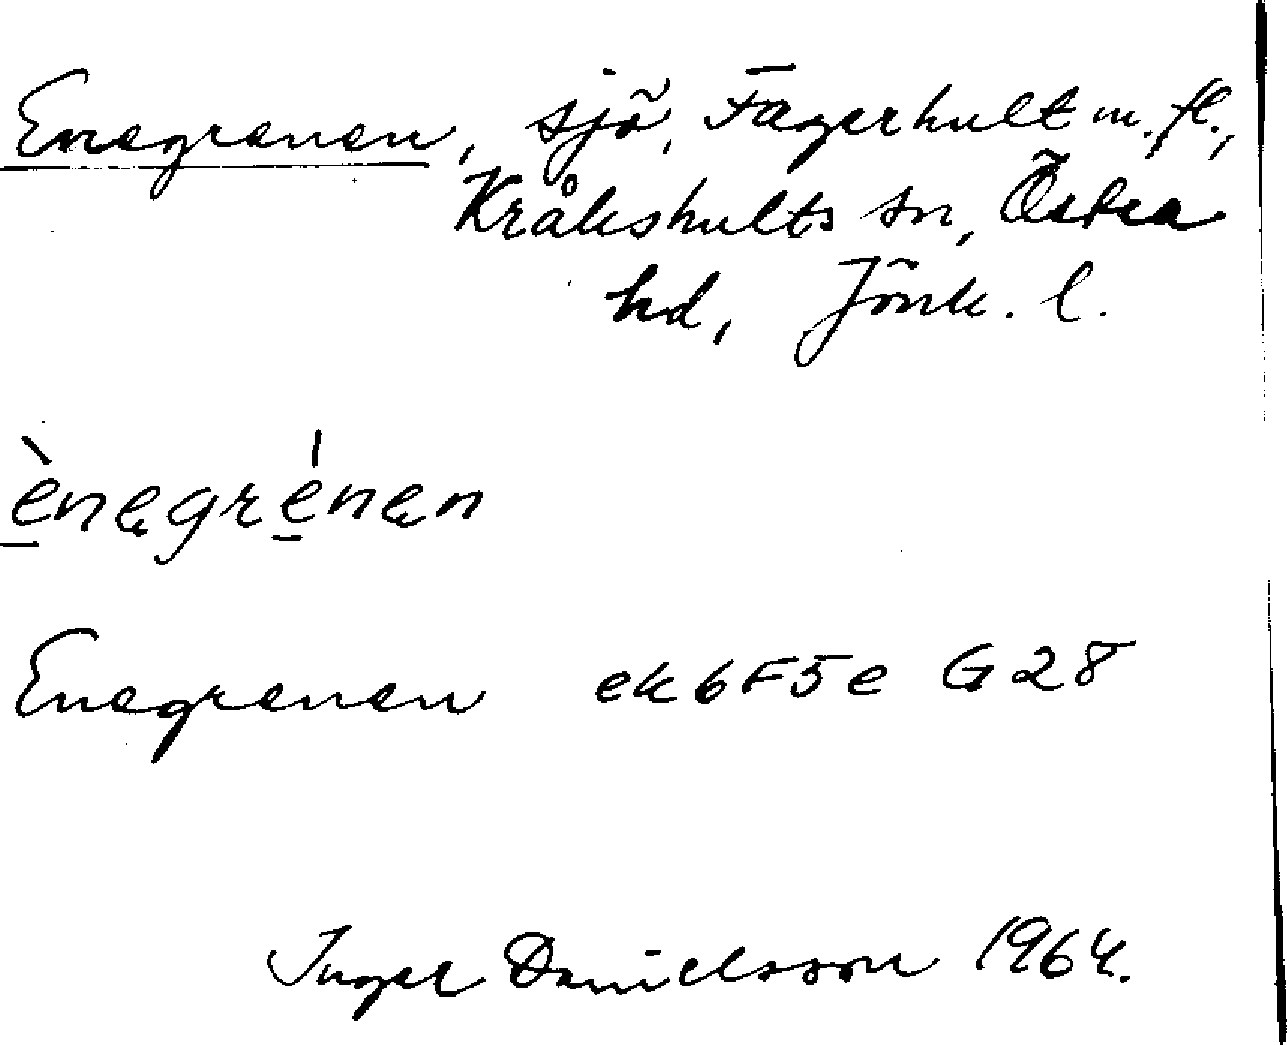 Enegrenen, sjö, Fagerhult m.fl.,
Kråkshults sn, Östra
hd, Jönk. l.
ènęgrénęn
Enegrenen ek6F5e G28
Inger Danielsson 1964.